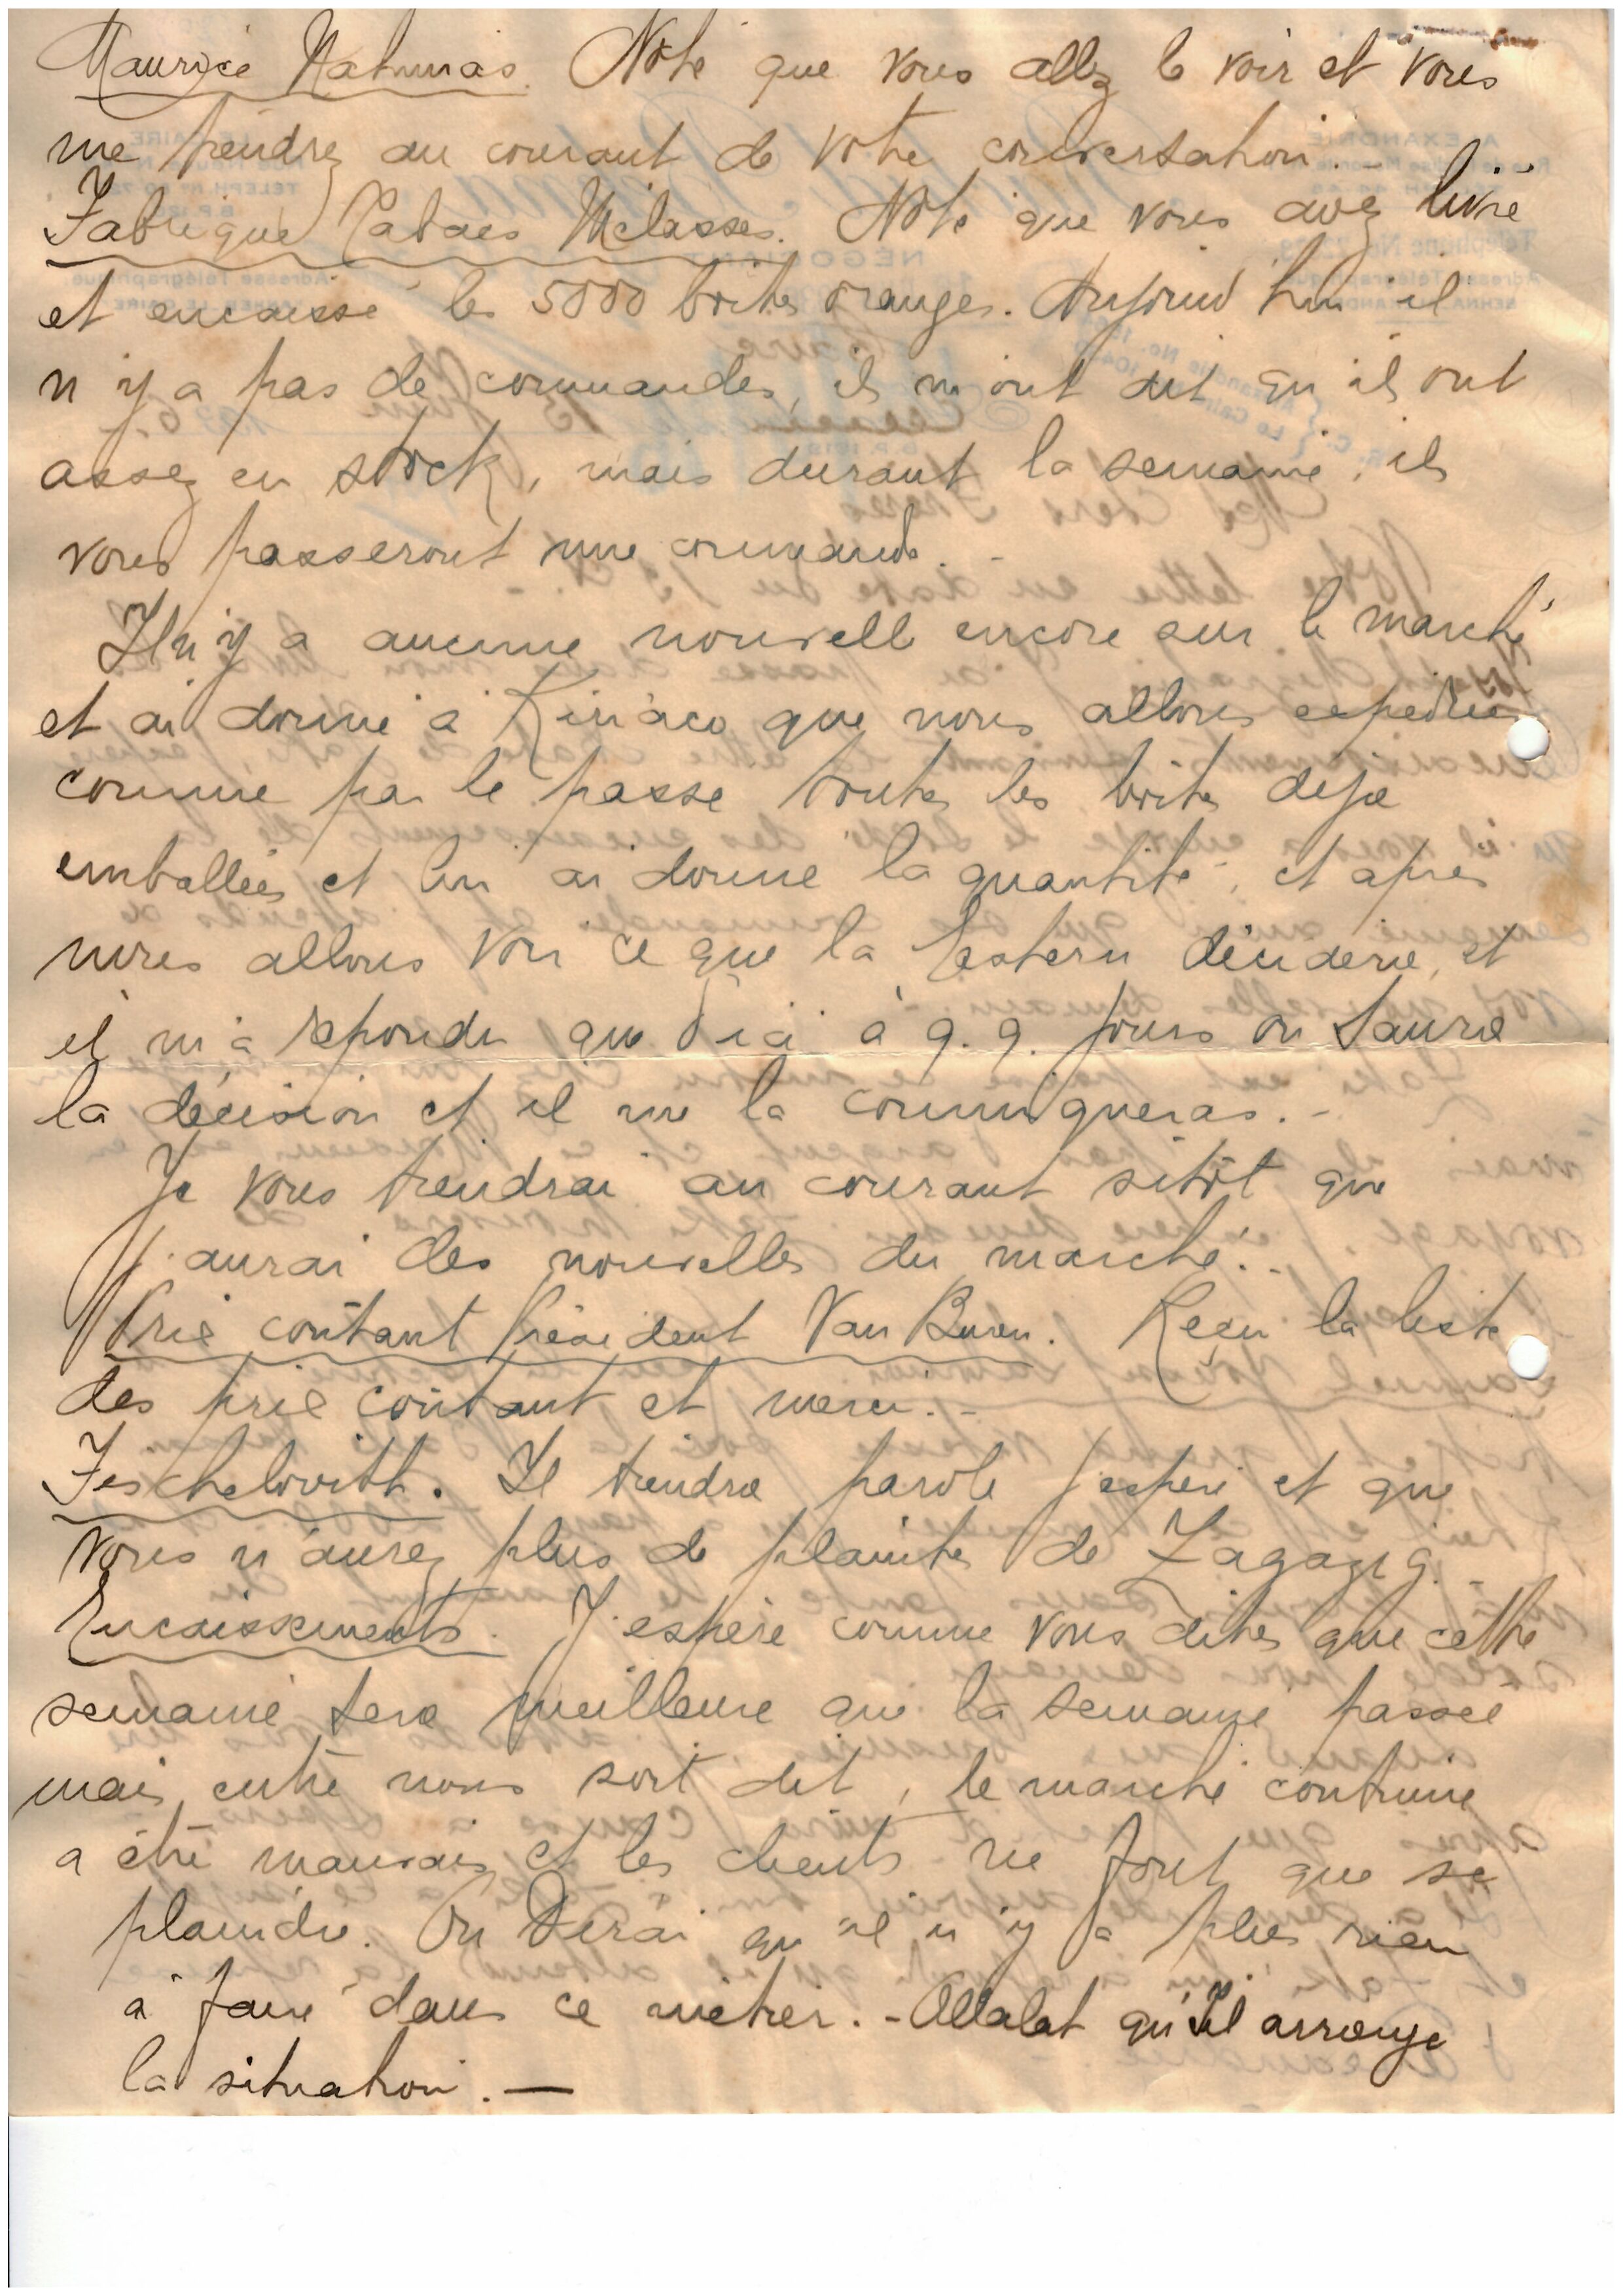 Maurice Nahmias. Noté que vous allez le voir et vous
me tiendrez au courant de votre conversation. -
Fabrique Tabacs Mélasses. Noté que vous avez livré
et encaissé les 5000 boites oranges. Aujourd'hui il
n'y a pas de commandes, ils m'ont dit qu'ils ont
assez en stock, mais durant la semaine, ils
vous passeront une commande. -
Il n'y a aucune nouvelle encore sur le marché
et ai donné à Kiriaco que nous allons expédier
comme par le passé toutes les boites deja
emballées et lui ai donné la quantité, et après
nous allons voir ce que la Eastern décidera, et
il m'a repondu que d'ici à q.q. jours on saura
la décision et il me la communiqueras. -
Je vous tiendrai au courant sitôt que
j'aurai des nouvelles du marché. -
Prix coûtant Président Van Buren. Reçu la liste
des prix coûtant et merci. -
Feschelovith. Il tiendra parole j'espère et que
vous n'aurez plus de plaintes de Zagazig. -
Encaissements. J'espère comme vous dites que cette
semaine sera meilleure que la semaine passée
mais entre nous soit dit, le marché continue
a être mauvais et les clients ne font que se
plaindre. On dirai qu'il n'y a plus rien
à faire dans ce métier. - Allalat qu'Il arrange
la situation. —